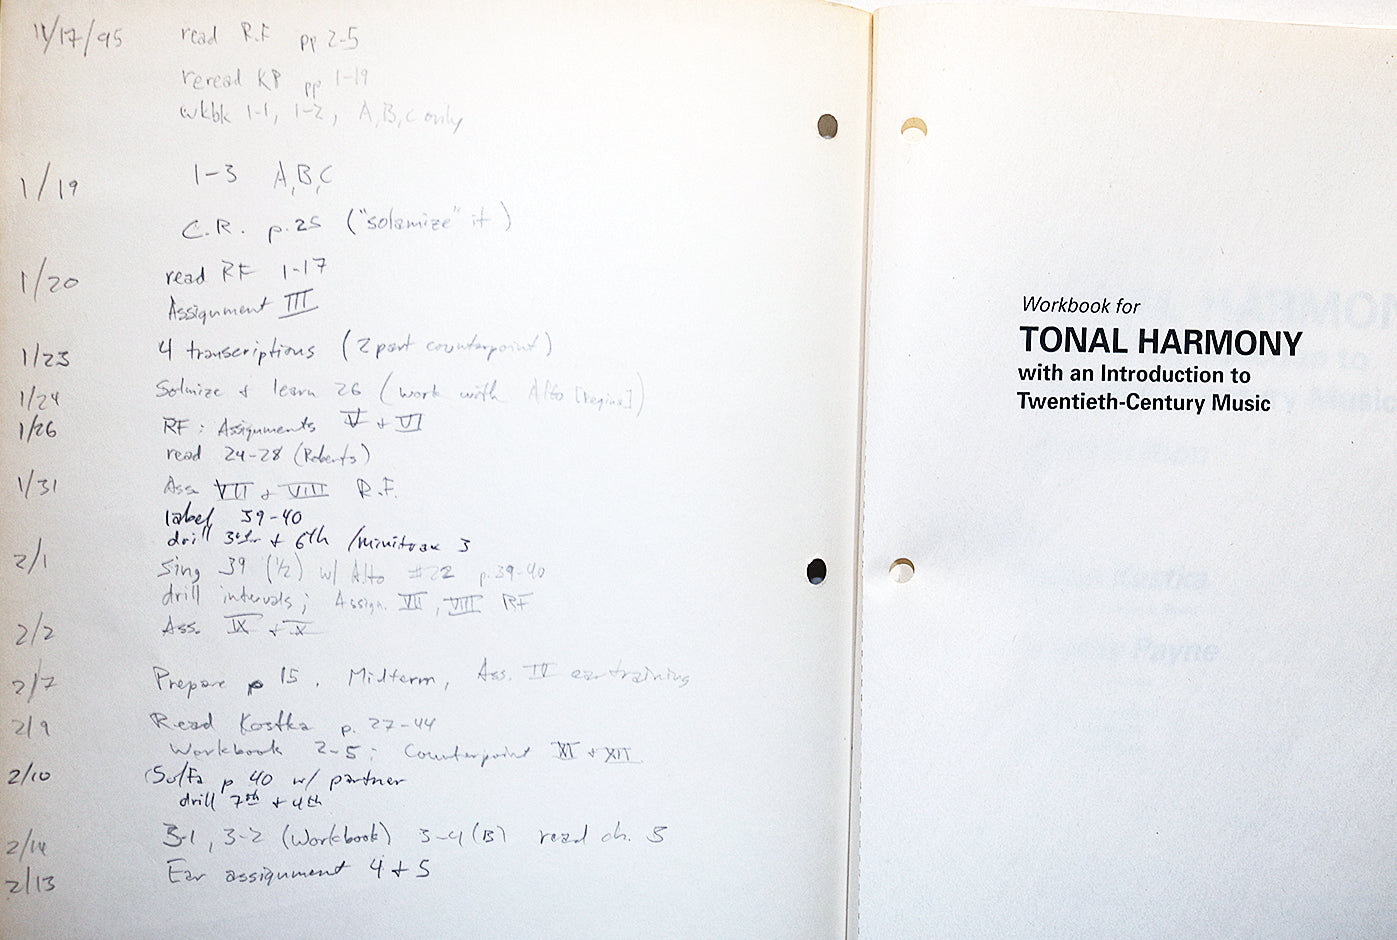 1/17/95 read R.F pp 2-5
reread KP pp 1-19
wkbk 1-1, 1-2, A,B,C only
1/19 1-3 A,B,C
C.R. p.25 ("solamize" it)
1/20 read RF 1-17
Assignment III
1/23 4 transcriptions (2 part counterpoint)
1/24 Solmize + learn 26 (work with Alto [Regina])
1/26 RF: Assignments V + VI
read 24-28 (Roberts)
1/31 Ass. VII + VIII R.F.
label 39-40
drill 3rds + 6th /minitrax 3
2/1 Sing 39 (1/2) w/ Alto #22 p.39-40
drill intervals; Assign. VII, VIII RF
2/2 Ass. IX + X
2/7 Prepare p 15. Midterm, Ass. IV ear training
2/9 Read Kostka p. 27-44
Workbook 2-5; Counterpoint XI + XII
2/10 Solfa p 40 w/ partner
drill 7th + 4th
2/14 3-1, 3-2 (Workbook) 3-4 (B) read ch. 3
2/13 Ear assignment 4 + 5
Workbook for
TONAL HARMONY
with an Introduction to
Twentieth-Century Music